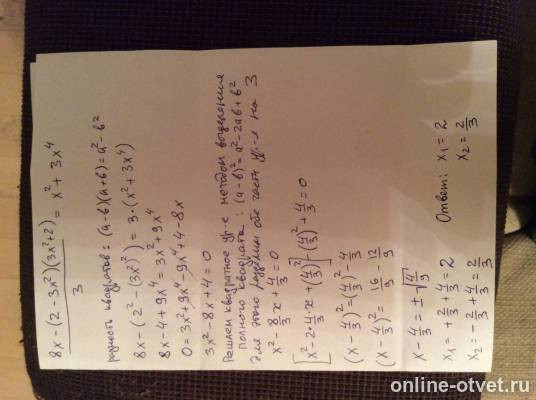 8x-(2-3x²)(3x²+2) / 3 = x² + 3x⁴
разность квадратов: (a-b)(a+b)=a²-b²
8x-(2²-(3x²)²)=3·(x²+3x⁴)
8x-4+9x⁴=3x²+9x⁴
0=3x²+9x⁴-9x⁴+4-8x
3x²-8x+4=0
Решаем квадратное ур-е методом выделения
полного квадрата: (a-b)²=a²-2ab+b²
для этого разделим обе части ур-я на 3
x²-8/3x+4/3=0
[x²-2·4/3·x+(4/3)²]-(4/3)²+4/3=0
(x-4/3)²=(4/3)²-4/3
(x-4/3)²=16/9-12/9
x-4/3=±√4/9
x₁=+2/3+4/3=2
x₂=-2/3+4/3=2/3
Ответ: x₁=2
x₂=2/3
online-otvet.ru